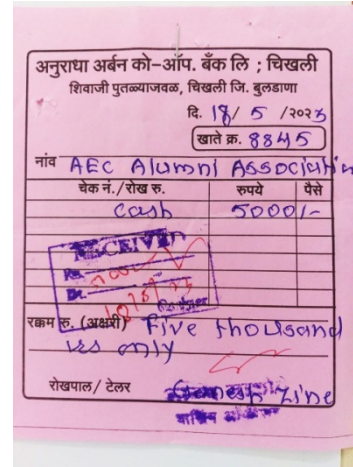 अनुराधा अर्बन को-ऑप. बँक लि ; चिखली
शिवाजी पुतळ्याजवळ, चिखली जि. बुलडाणा
दि. 18/ 5 /२०२3
खाते क्र. 8845
नांव AEC Alumni Association
चेक नं./रोख रु. रुपये पैसे
cash 5000/-
RECEIVED
Rs.
Dt.
Cashier
रक्कम रु. (अक्षरी) five thousand
only
रोखपाल/ टेलर Ganesh Zine